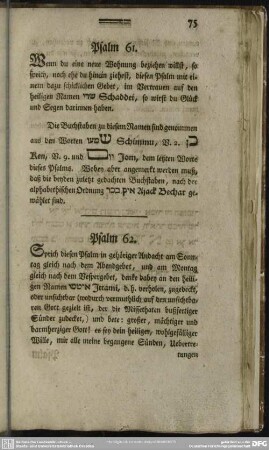 75
Psalm 61.
Wenn du eine neue Wohnung beziehen willst, so
sprich, noch ehe du hinein ziehest, diesen Psalm mit ei-
nem dazu schicklichen Gebet, im Vertrauen auf den
heiligen Namen שדי Schaddei, so wirst du Glück
und Segen darinnen haben.
Die Buchstaben zu diesem Namen sind genommen
aus den Worten שמע Schimmu, V. 2. כן
Ken, V. 9. und יום Jom, dem letzten Worte
dieses Psalms. Wobey aber angemerkt werden muß,
daß die beyden zuletzt gedachten Buchstaben, nach der
alphabethischen Ordnung איק בכר Ajack Bechar ge-
wählet sind.
Psalm 62.
Sprich diesen Psalm in gehöriger Andacht am Sonn-
tag gleich nach dem Abendgebet, und am Montag
gleich nach dem Vespergebet, denke dabey an den hei-
ligen Namen Ittami, d. h. verholen, zugedeckt,
oder unsichtbar (wodurch vermuthlich auf den unsichtba-
ren Gott gezielt ist, der die Missethaten bussfertiger
Sünder zudecket,) und bete: großer, mächtiger und
barmherziger Gott! es sey dein heiliger, wohlgefälliger
Wille, mir alle meine begangene Sünden, Uebertre-
tungen